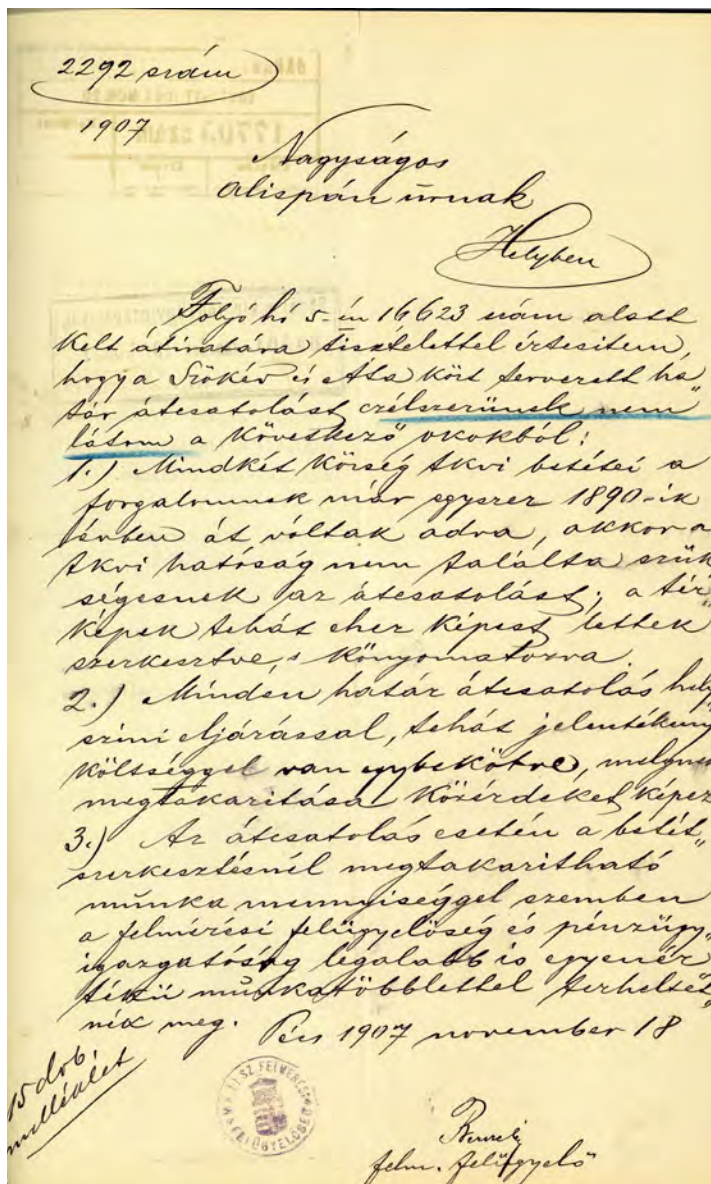 2292 szám
1907
Nagyságos
alispán úrnak
Helyben
Folyó hó 5-én 16623 szám alatt
kelt átiratára tisztelettel értesitem,
hogy a Szőkéd és Áta közt tervezett ha„
tár átcsatolást czélszerünek nem
látom a következő okokból:
1.) Mindkét község tkvi betétei a
forgalomnak már egyszer 1890-ik
évben át vóltak adva, akkor a
tkvi hatóság nem találta szük
ségesnek az átcsatolást; a tér„
képek tehát ehez képest lettek
szerkesztve, s kőnyomatozva.
2.) Minden határ átcsatolás hely„
szini eljárással, tehát jelentékeny
költséggel van egybekötve, melynek
megtakaritása közérdeket képez
3.) Az átcsatolás esetén a betét„
szerkesztésnél megtakaritható
munka mennyiséggel szemben
a felmérési felügyelőség és pénzügy„
igazgatóság legalább is egyenér
tékü munkatöbblettel terheltet„
nék meg. Pécs 1907 november 18
15 drb.
melléklet
felm. felügyelő